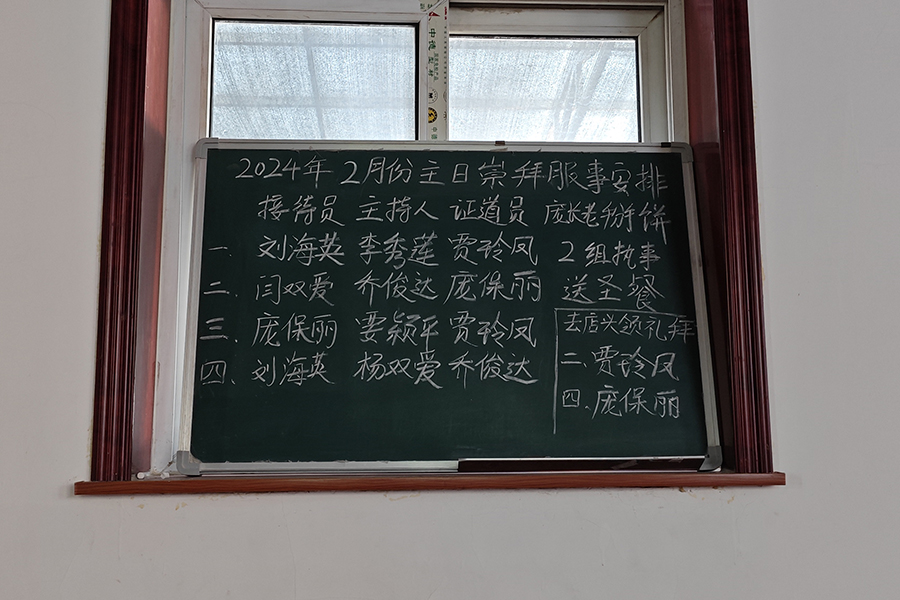 中德型材
2024年2月份主日崇拜服事安排
接待员 主持人 证道员 庞长老掰饼
一. 刘海英 李秀莲 贾玲凤 2组执事
二. 闫双爱 乔俊达 庞保丽 送圣餐
三. 庞保丽 要颖平 贾玲凤 去店头领礼拜
四. 刘海英 杨双爱 乔俊达 二. 贾玲凤
四. 庞保丽